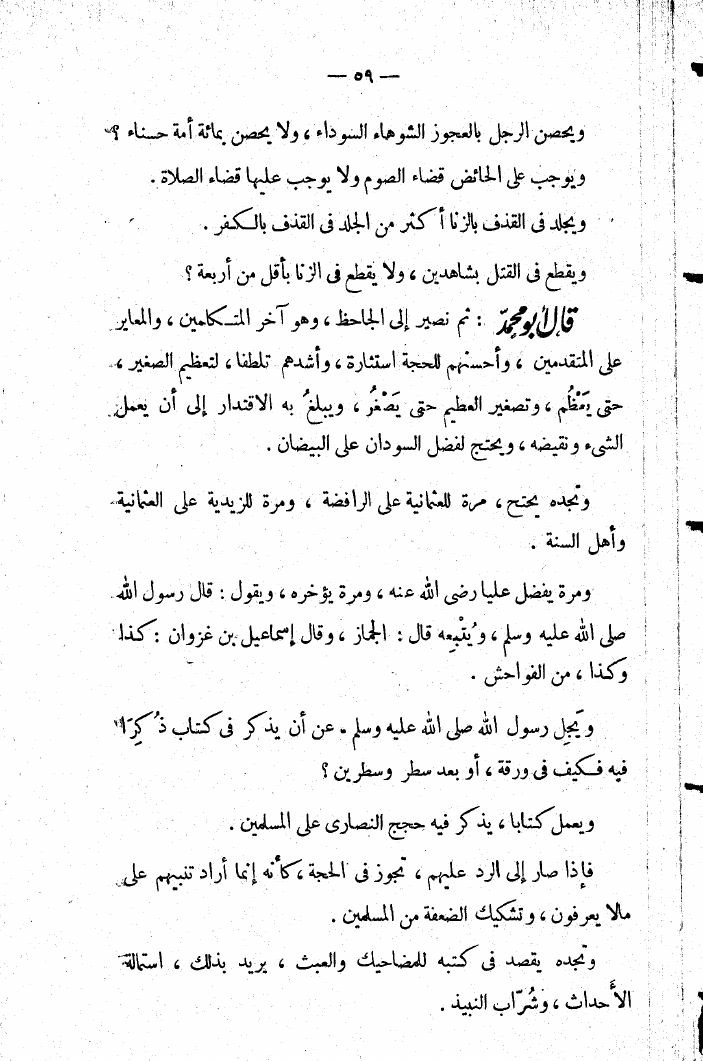 — ٥٩ —
ويحصن الرجل بالعجوز الشوهاء السوداء ، ولا يحصن بمائة أمة حسناء ؟
ويوجب على الحائض قضاء الصوم ولا يوجب عليها قضاء الصلاة .
ويجلد فى القذف بالزنا أكثر من الجلد فى القذف بالكفر .
ويقطع فى القتل بشاهدين ، ولا يقطع فى الزنا بأقل من أربعة ؟
قال أبو محمد : ثم نصير إلى الجاحظ ، وهو آخر المتكلمين ، والمعاير
على المتقدمين ، وأحسنهم للحجة استثارة ، وأشدهم تلطفا ، لتعظيم الصغير ،
حتى يَعْظُم ، وتصغير العظيم حتى يَصْغُر ، ويبلغُ به الاقتدار إلى أن يعمل
الشىء ونقيضه ، ويحتج لفضل السودان على البيضان .
وتجده يحتج ، مرة للعثمانية على الرافضة ، ومرة للزيدية على العثمانية
وأهل السنة .
ومرة يفضل عليا رضى الله عنه ، ومرة يؤخره ، ويقول : قال رسول الله
صلى الله عليه وسلم ، ويُتْبِعه قال : الجماز ، وقال إسماعيل بن غزوان : كذا
وكذا ، من الفواحش .
ويَجِل رسول الله صلى الله عليه وسلم - عن أن يذكر فى كتاب ذُكِرَا
فيه فكيف فى ورقة ، أو بعد سطر وسطرين ؟
ويعمل كتابا ، يذكر فيه حجج النصارى على المسلمين .
فإذا صار إلى الرد عليهم ، تجوز فى الحجة ، كأنه إنما أراد تنبيههم على
مالا يعرفون ، وتشكيك الضعفة من المسلمين .
وتجده يقصد فى كتبه للمضاحيك والعبث ، يريد بذلك ، استمالة
الأَحداث ، وشُرّاب النبيذ .